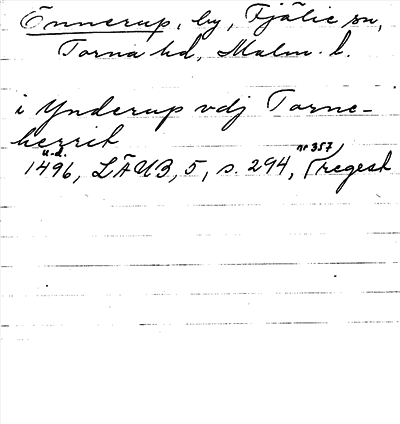 Önnerup, by, Fjälie sn,
Torna hd, Malm. l.
i Ynderup vdj Torne-
herrit
u.d.
1496, LÄUB, 5, s. 294, nr 357, (regest